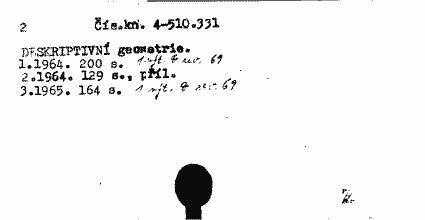 2 Čís.kn. 4-510.331
DESKRIPTIVNÍ geometrie.
1.1964. 200 s. 69
2.1964. 129 s., příl.
3.1965. 164 s. 69